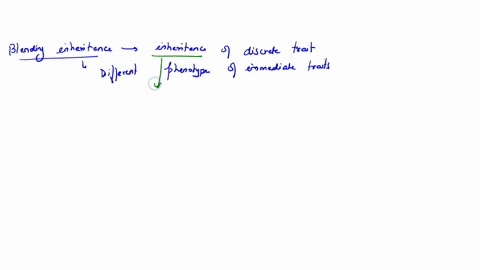 Blending inheritance → inheritance of discrete trait
Different phenotype of immediate traits